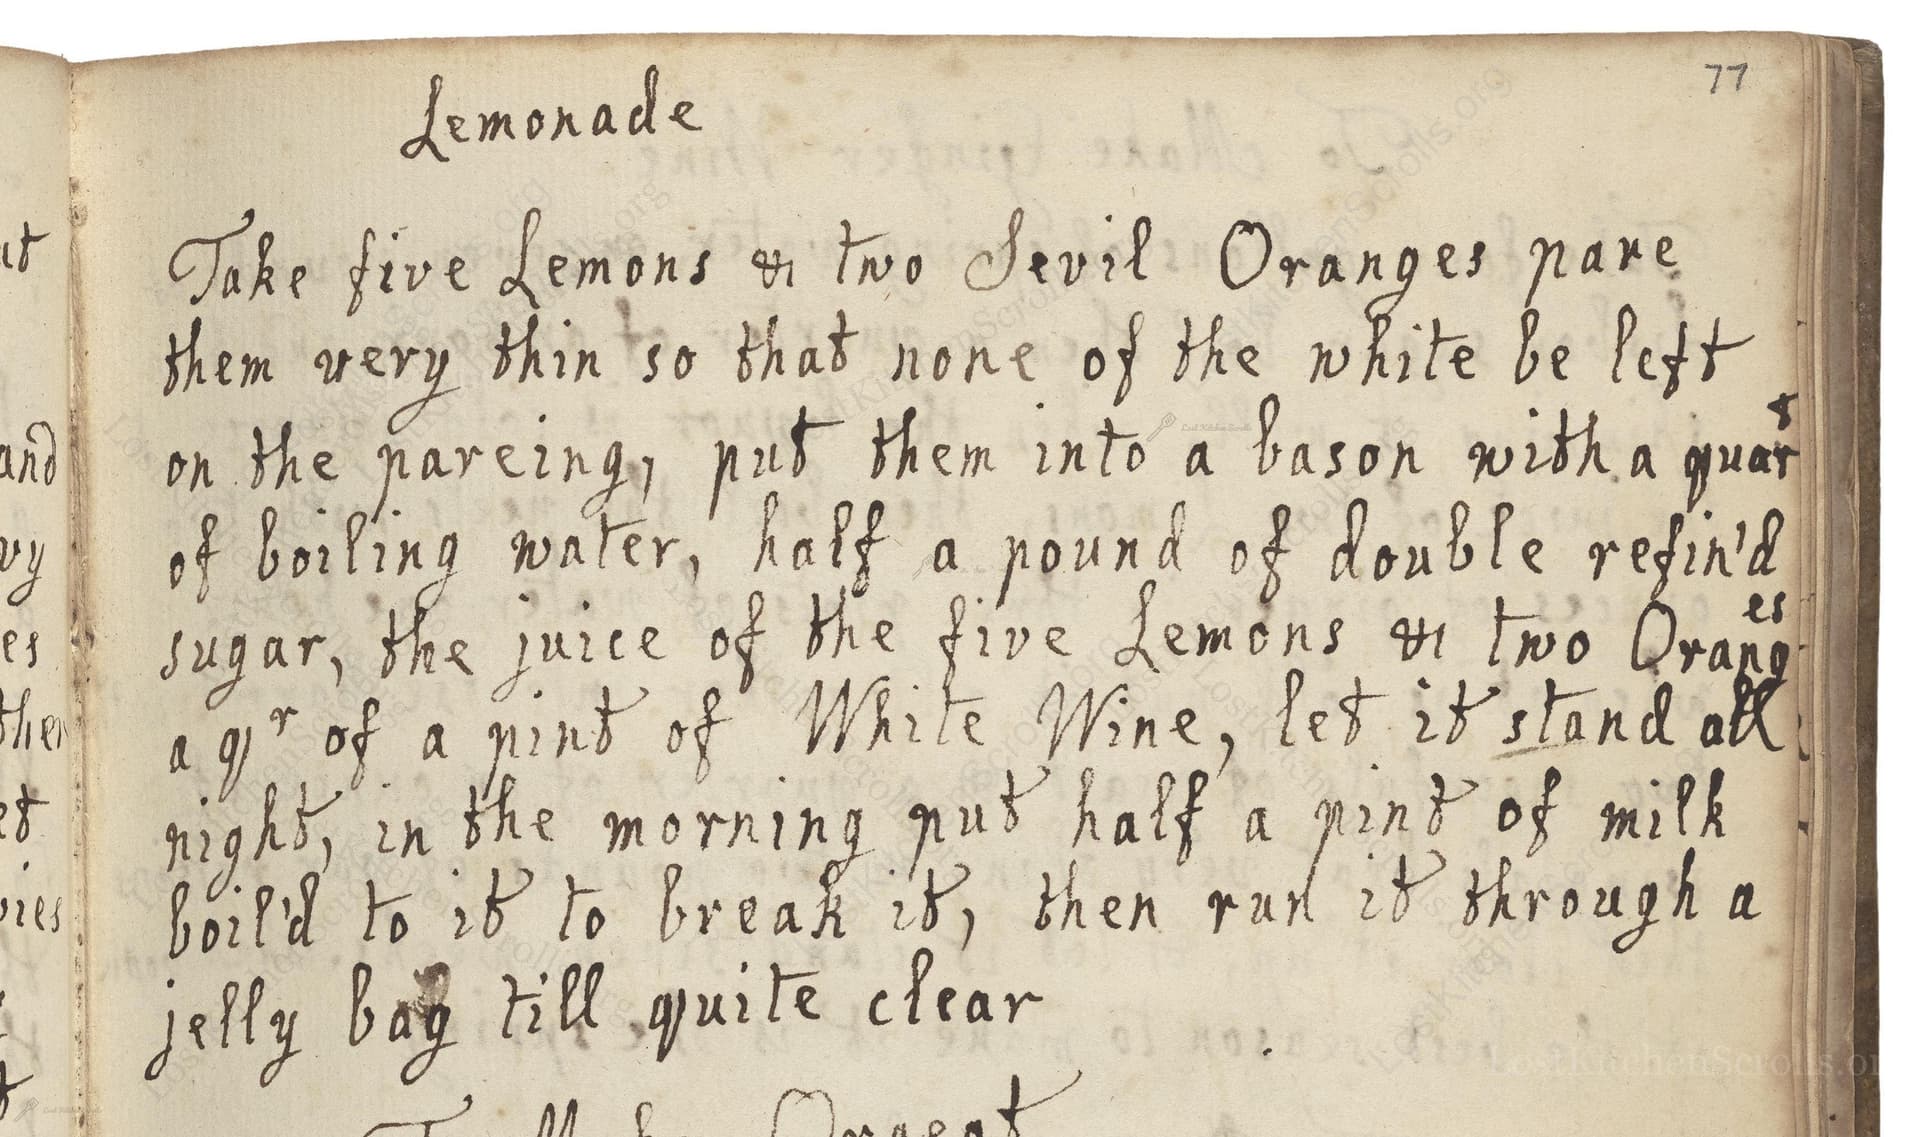 77
Lemonade
Take five Lemons & two Sevil Oranges pare
them very thin so that none of the white be left
on the pareing, put them into a bason with a quart
of boiling water, half a pound of double refin'd
sugar, the juice of the five Lemons & two Oranges
a qr of a pint of White Wine, let it stand all
night, in the morning put half a pint of milk
boil'd to it to break it, then run it through a
jelly bag till quite clear
Orgeat
LostKitchenScrolls.org